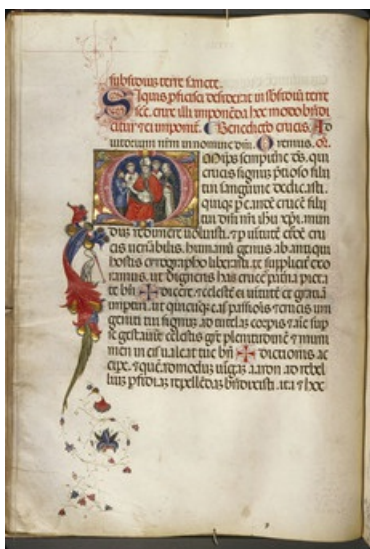 subsidium terre sancte.
Siquis pficisci desiderat in sbsidiū terre
scē. crux illi imponēda hoc modo bñdi
citur ⁊ ei imponit̄. Benedictō crucis. Ad
iutorium nr̄m in nomine dm̄. Oremus. or̄.
Omps sempitne ds̄. qui
crucis signuʒ p̄tioso filii
tui sanguine dedicasti.
quiqʒ p̄ eandē crucē filii
tui dn̄i nr̄i ihū xp̄i. mun
duʒ redimere voluisti. ⁊ p uirtutē eiusdē cru
cis uenerabilis. humanū genus ab antiqui
hostis cyrographo liberasti. te supplicit̄ exo
ramus. ut digneris hanc crucē p̄na pieta
te bñ ✠ dicere. ⁊ celestē ei uirtutē et gratiā
impetiri. ut quicūqʒ eā ī passiōis ⁊ crucis uni
geniti tui signuʒ ad tutelaʒ corpis ⁊ aīe sup
se gestauit̄ celestis grē plenitudinē ⁊ muni
men in ea ualeat tue bñ ✠ dictionis ac
cipe. ⁊ quēadmoduʒ uirgaʒ aaron ad rebel
liuʒ pfidiaʒ repellēdaʒ bñdixisti. ita ⁊ hoc